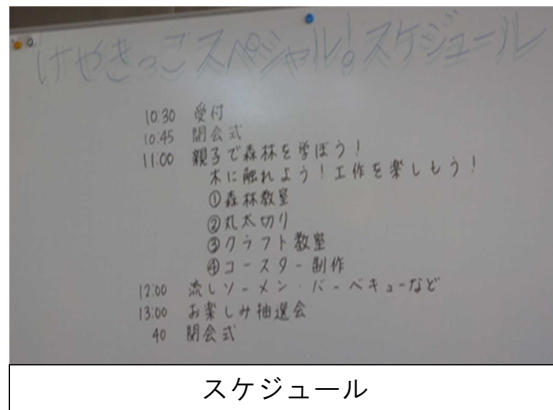 けやきっこスペシャル!スケジュール
10:30 受付
10:45 開会式
11:00 親子で森林を学ぼう!
木に触れよう!工作を楽しもう!
①森林教室
②丸太切り
③クラフト教室
④コースター制作
12:00 流しソーメン・バーベキューなど
13:00 お楽しみ抽選会
40 閉会式
スケジュール